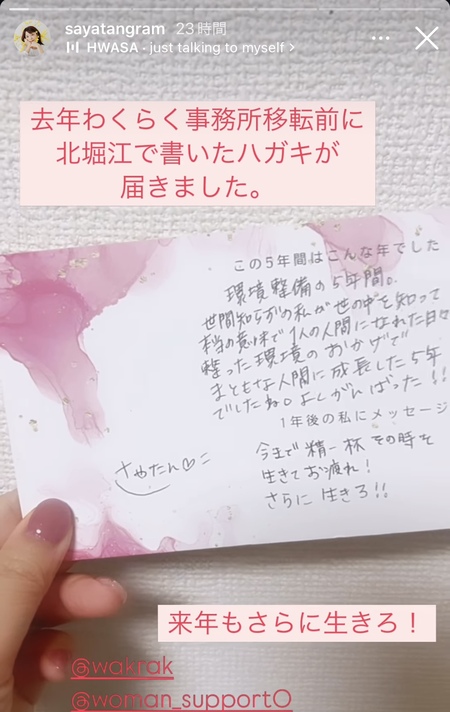 sayatangram 23時間
HWASA · just talking to myself >
去年わくらく事務所移転前に
北堀江で書いたハガキが
届きました。
この5年間はこんな年でした
環境整備の5年間。
世間知らずの私が世の中を知って
本当の意味で1人の人間になれた日々
整った環境のおかげで
まともな人間に成長した5年
でしたね。よくがんばった!!
1年後の私にメッセージ
今まで精一杯その時を
生きてお疲れ!
さらに生きろ!!
さやたん♡
来年もさらに生きろ!
@wakrak
@woman_supportO